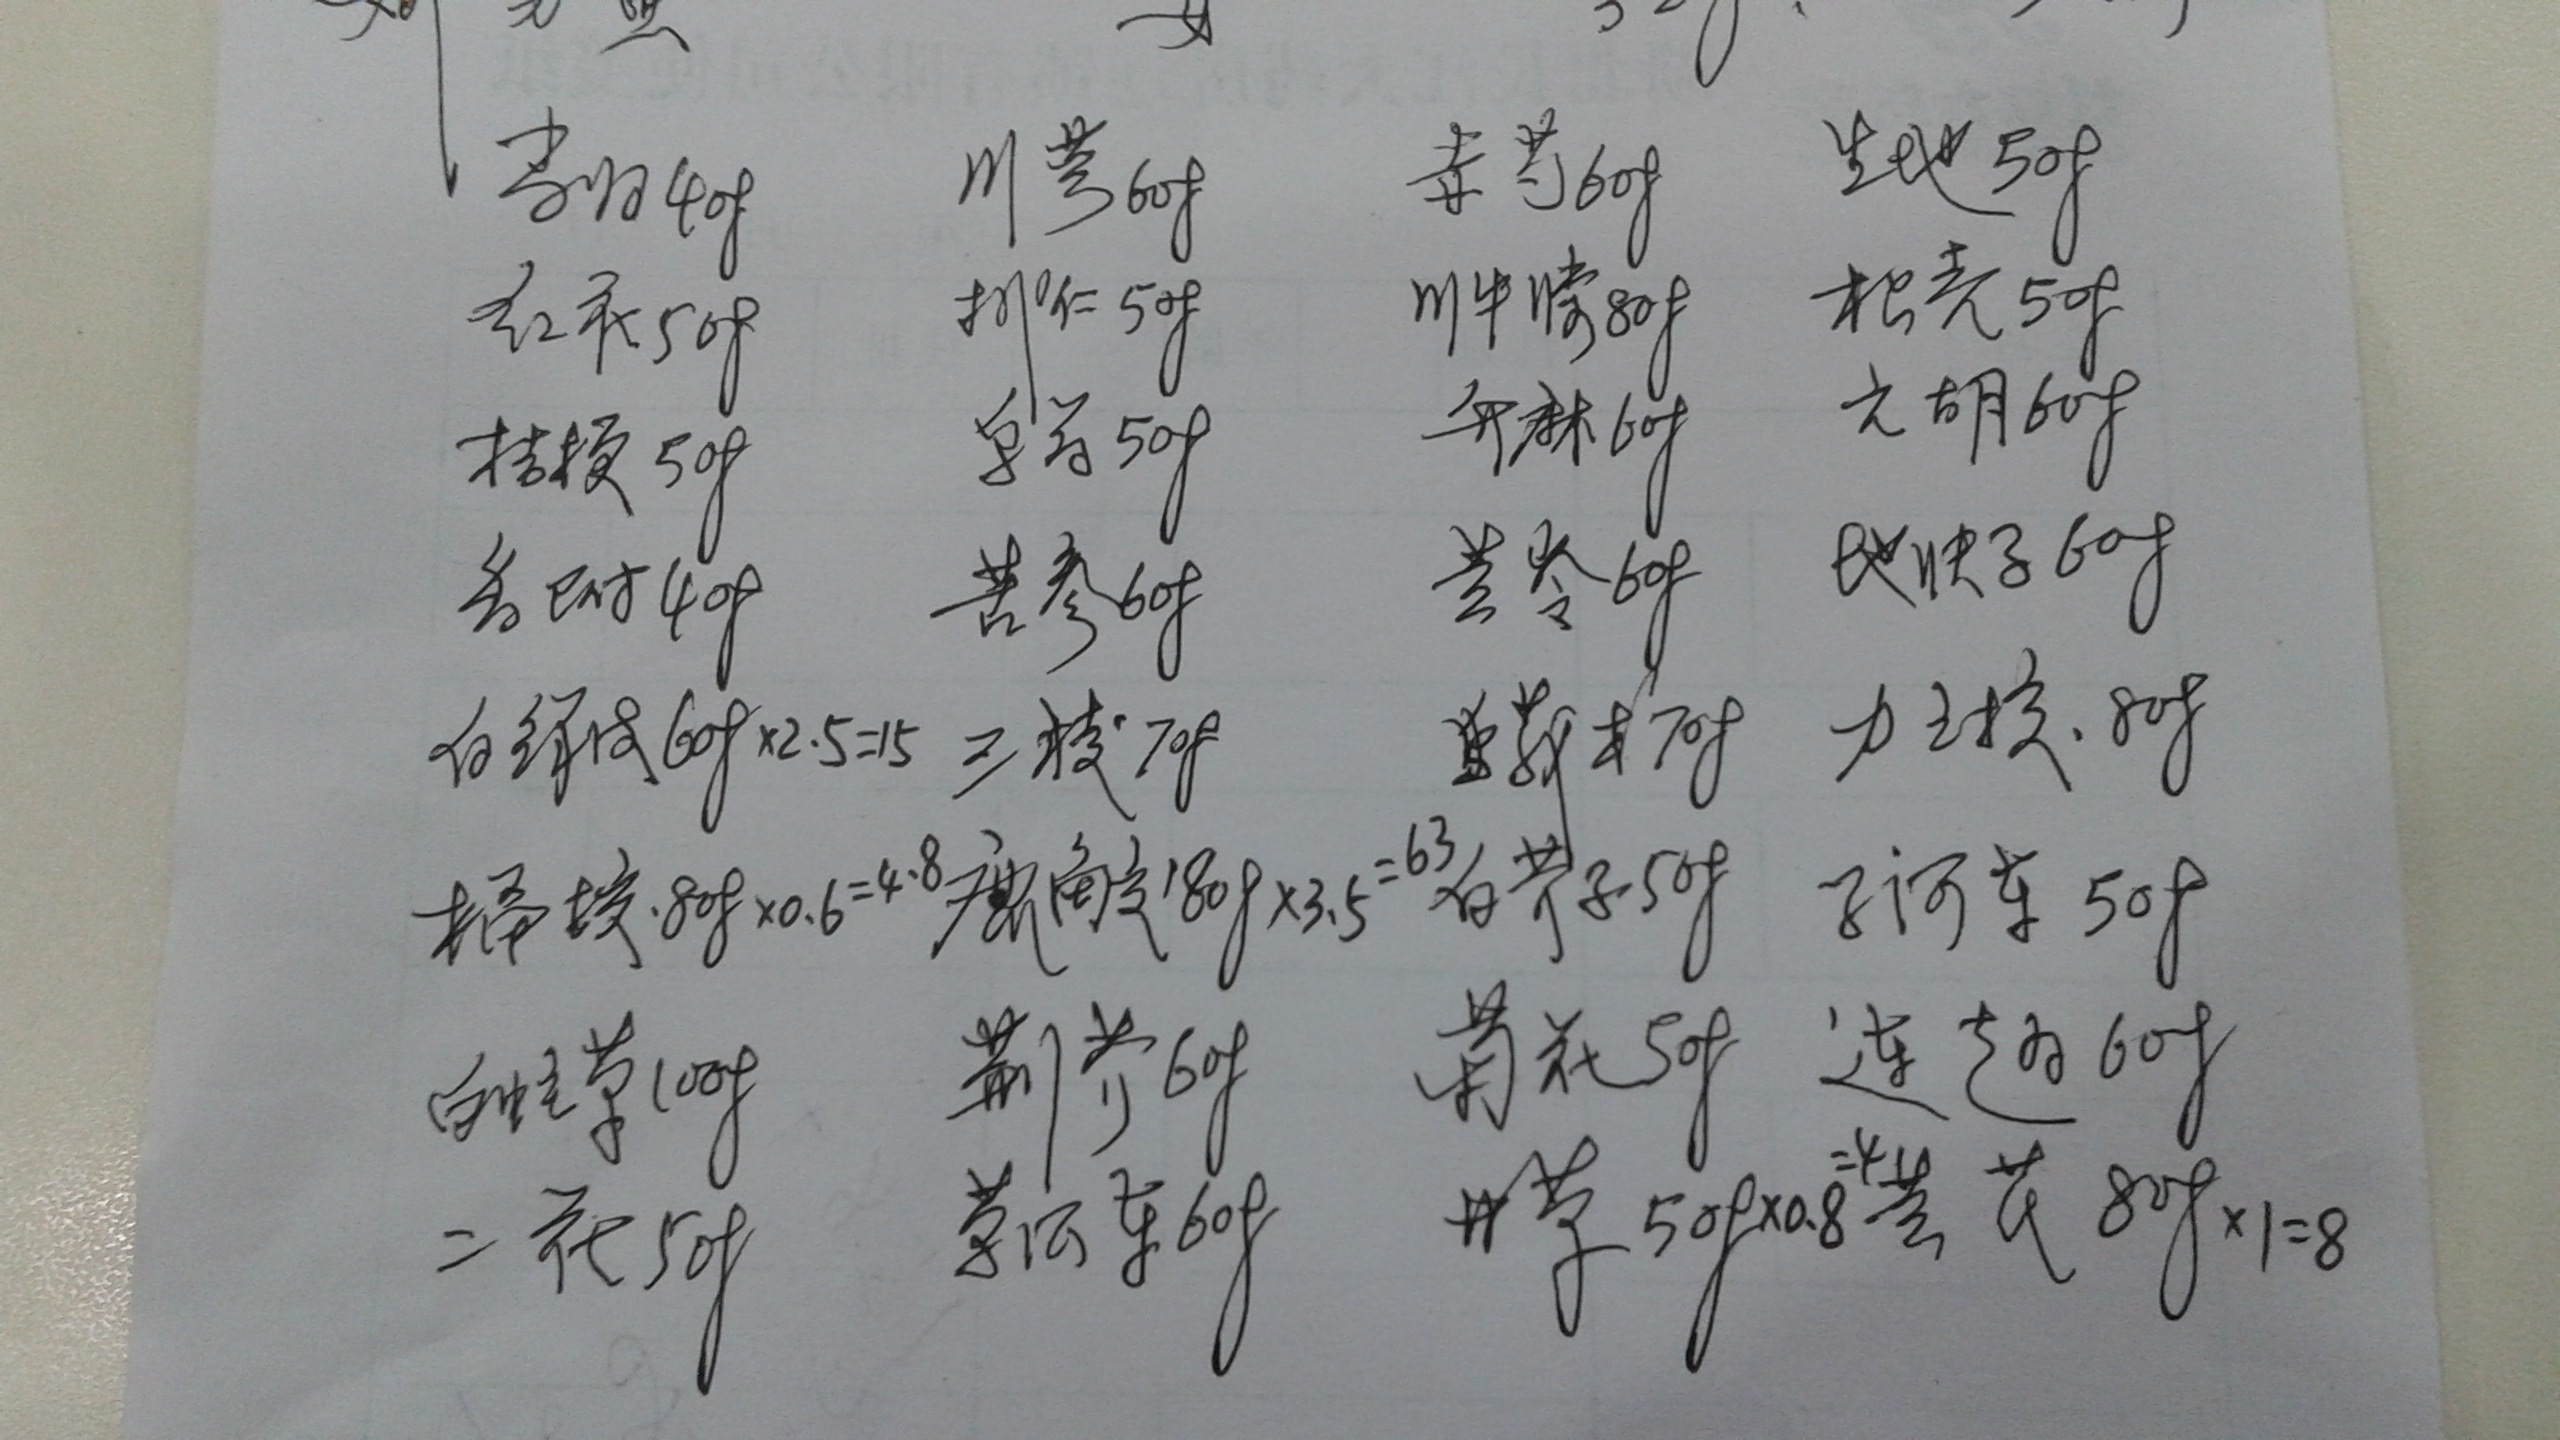 女
当归40g 川芎60g 赤芍60g 生地50g
红花50g 桃仁50g 川牛膝80g 枳壳50g
桔梗50g 50g 升麻60g 元胡60g
香附40g 苦参60g 黄芩60g 地肤子60g
白鲜皮60g×2.5=15 三棱70g 莪术70g 80g
80g×0.6=4.8 鹿角 180g×3.5=63 白芥子50g 子河车 50g
白蛇草100g 荆芥60g 菊花50g 连翘60g
二花50g 草河车60g 甘草50g×0.8=4 黄芪80g×1=8